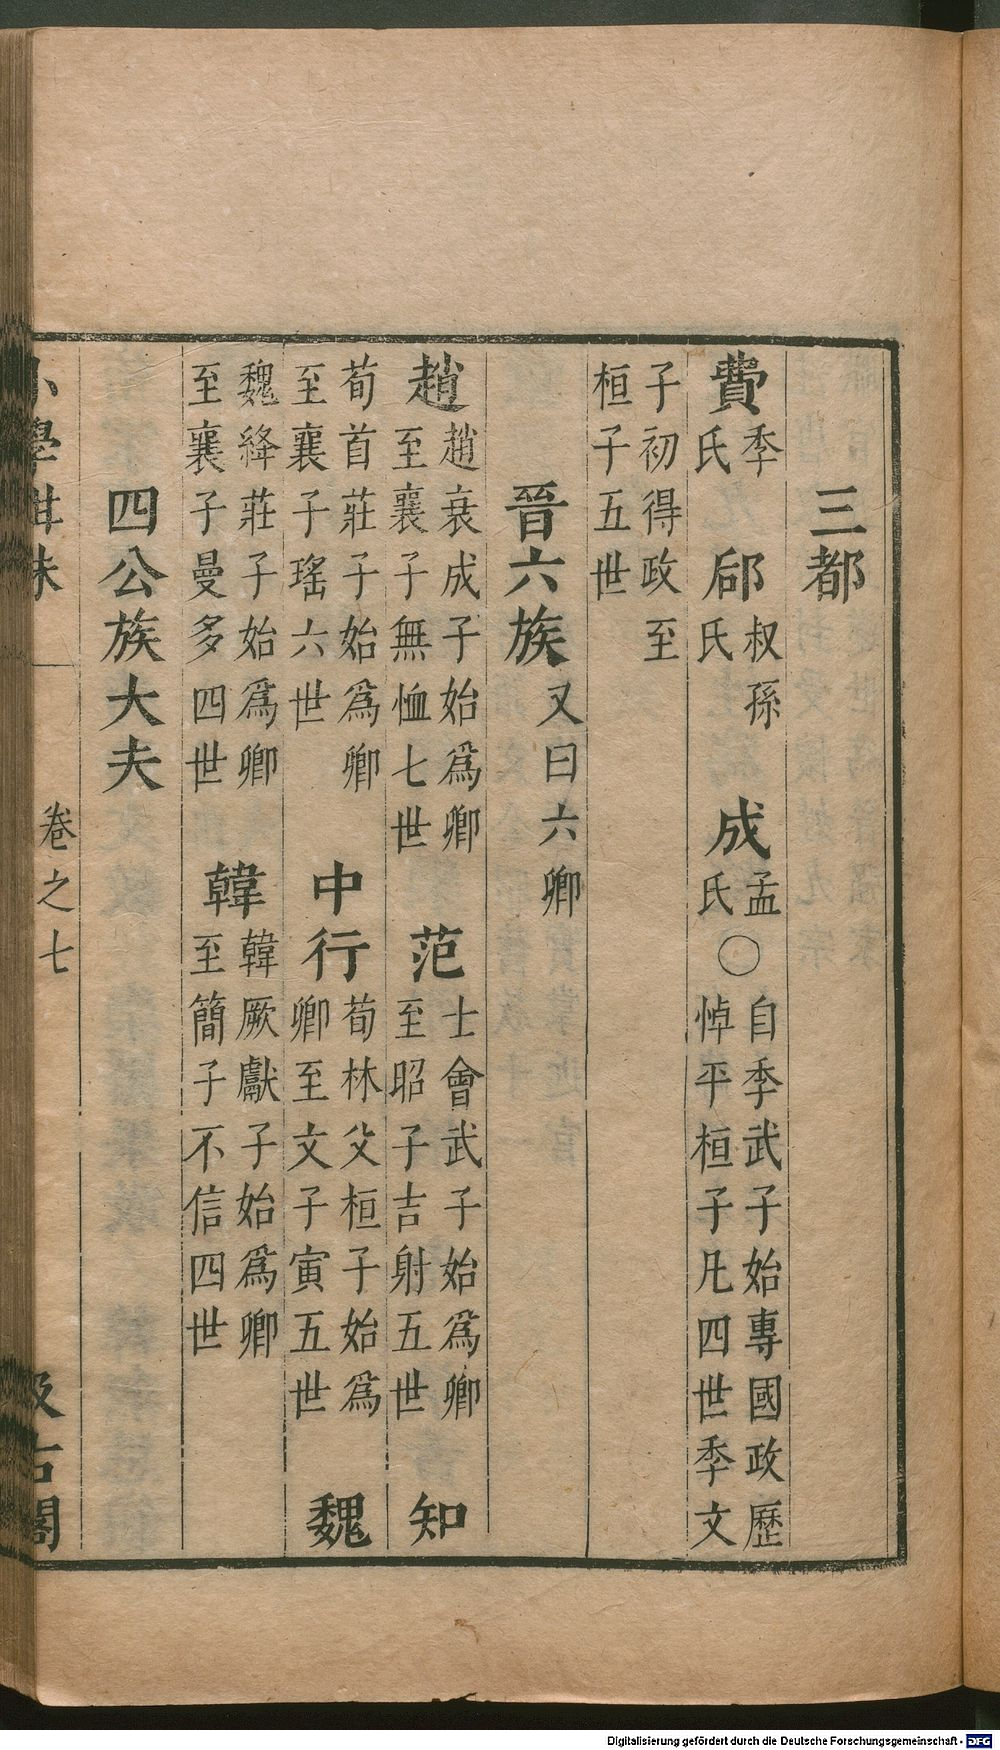 三都
費季氏 郈叔孫氏 成孟氏○自季武子始專國政歷悼平桓子凡四世季文
子初得政至桓子五世
晉六族又曰六卿
趙趙衰成子始爲卿至襄子無恤七世 范士會武子始爲卿至昭子吉射五世 知
荀首莊子始爲卿至襄子瑤六世 中行荀林父桓子始爲卿至文子寅五世 魏
魏絳莊子始爲卿至襄子曼多四世 韓韓厥獻子始爲卿至簡子不信四世
四公族大夫
小學紺珠 卷之七 汲古閣
Digitalisierung gefördert durch die Deutsche Forschungsgemeinschaft - DFG